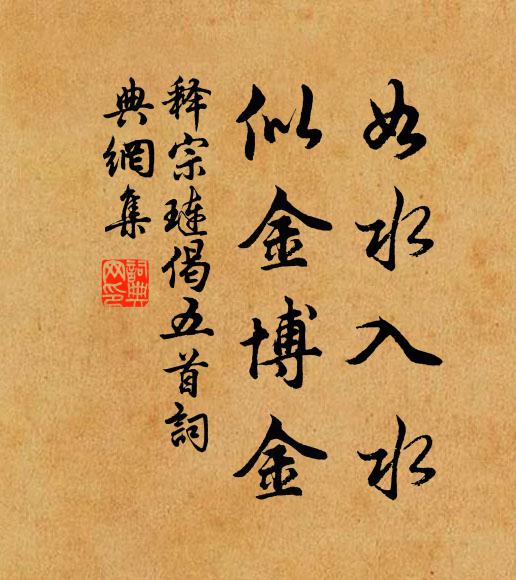 如水入水
似金博金
释宗琏偈五首詞
典網集
詞典
网印